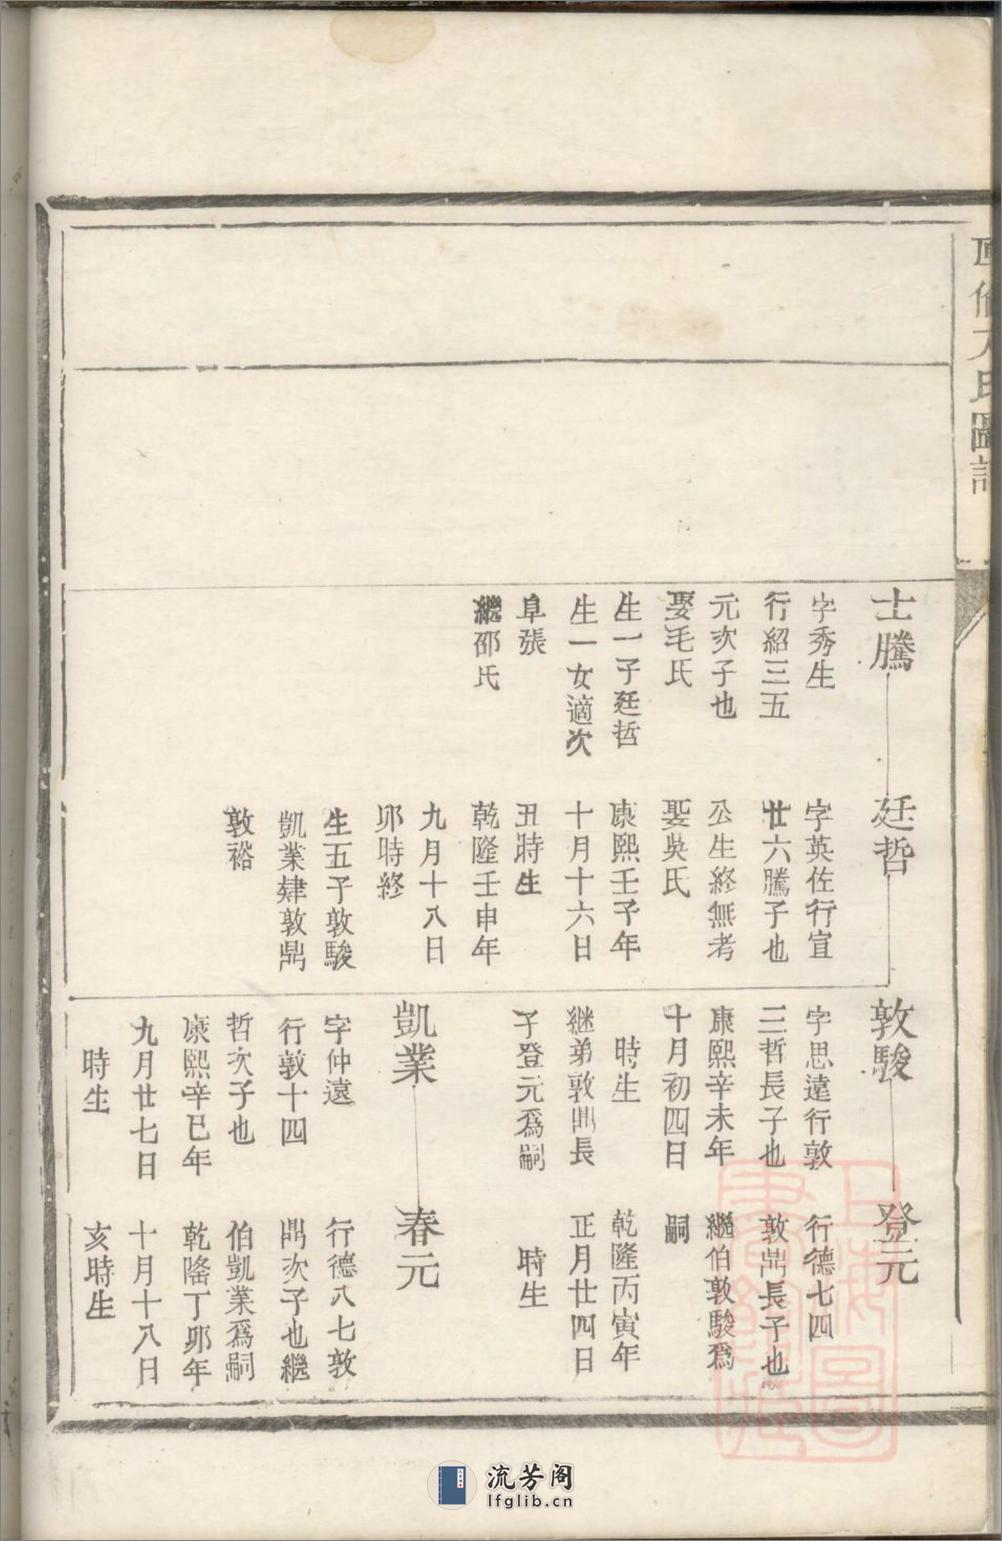 氏圖
士騰
字秀生
行紹三五
元次子也
娶毛氏
生一子廷哲
生一女適次
阜張
繼邵氏
廷哲
字英佐行宣
廿六騰子也
公生終無考
娶吳氏
康熙壬子年
十月十六日
丑時生
乾隆壬申年
九月十八日
卯時終
生五子敦駿
凱業肄敦鼎
敦裕
敦駿
字思遠行敦
三哲長子也
康熙辛未年
十月初四日
時生
継弟敦鼎長
子登元爲嗣
登元
行德七四
敦鼎長子也
繼伯敦駿爲
嗣
乾隆丙寅年
正月廿四日
時生
凱業
字仲遠
行敦十四
哲次子也
康熙辛巳年
九月廿七日
時生
春元
行德八七敦
鼎次子也繼
伯凱業爲嗣
乾隆丁卯年
十月十八日
亥時生
上海圖書館藏
流芳阁
lfglib.cn